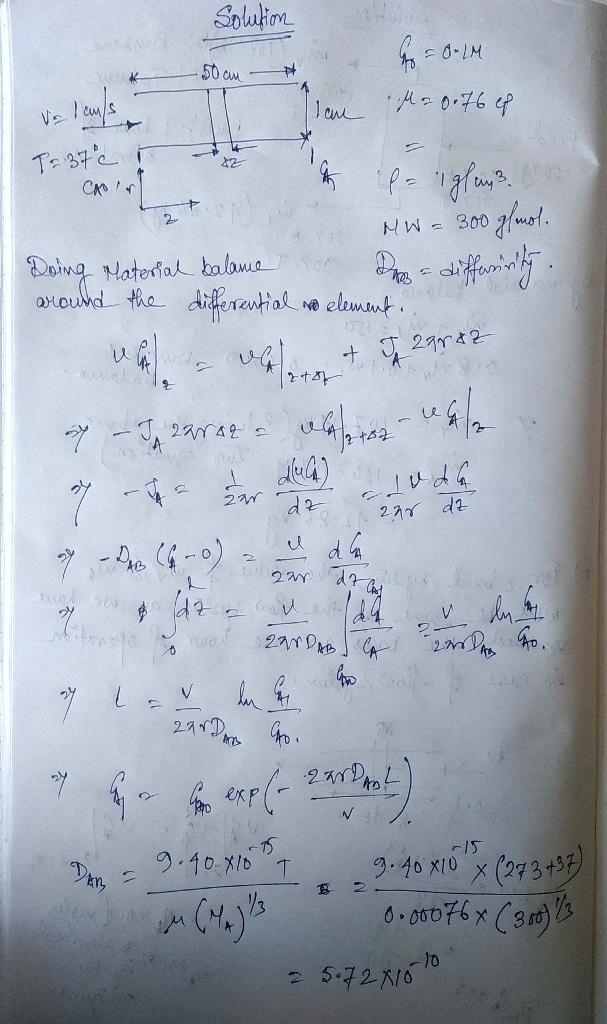 Solution
50 cm
V = 1 cm/s
T = 37°C
CA0, r
z
δz
1 cm
CA0 = 0.1M
μ = 0.76 cp
=
ρ = 1 g/cm3.
MW = 300 g/mol.
DAB = diffusivity.
Doing Material balance
around the differential element.
u CA|z = u CA|z+δz + JA 2πr δz
⇒ - JA 2πr δz = u CA|z+δz - u CA|z
⇒ - JA = 1/2πr d(uCA)/dz = 1/2πr u dCA/dz
⇒ - DAB (CA - 0) = u/2πr dCA/dz
⇒ ∫0^L dz = v/2πrDAB ∫CA0^CA1 dCA/CA = v/2πrDAB ln CA1/CA0.
⇒ L = v/2πrDAB ln CA1/CA0.
⇒ CA1 = CA0 exp(- 2πrDABL/v).
DAB = 9.40 × 10^-15 T / μ (MA)^1/3 = 9.40 × 10^-15 × (273+37) / 0.00076 × (300)^1/3
= 5.72 × 10^-10